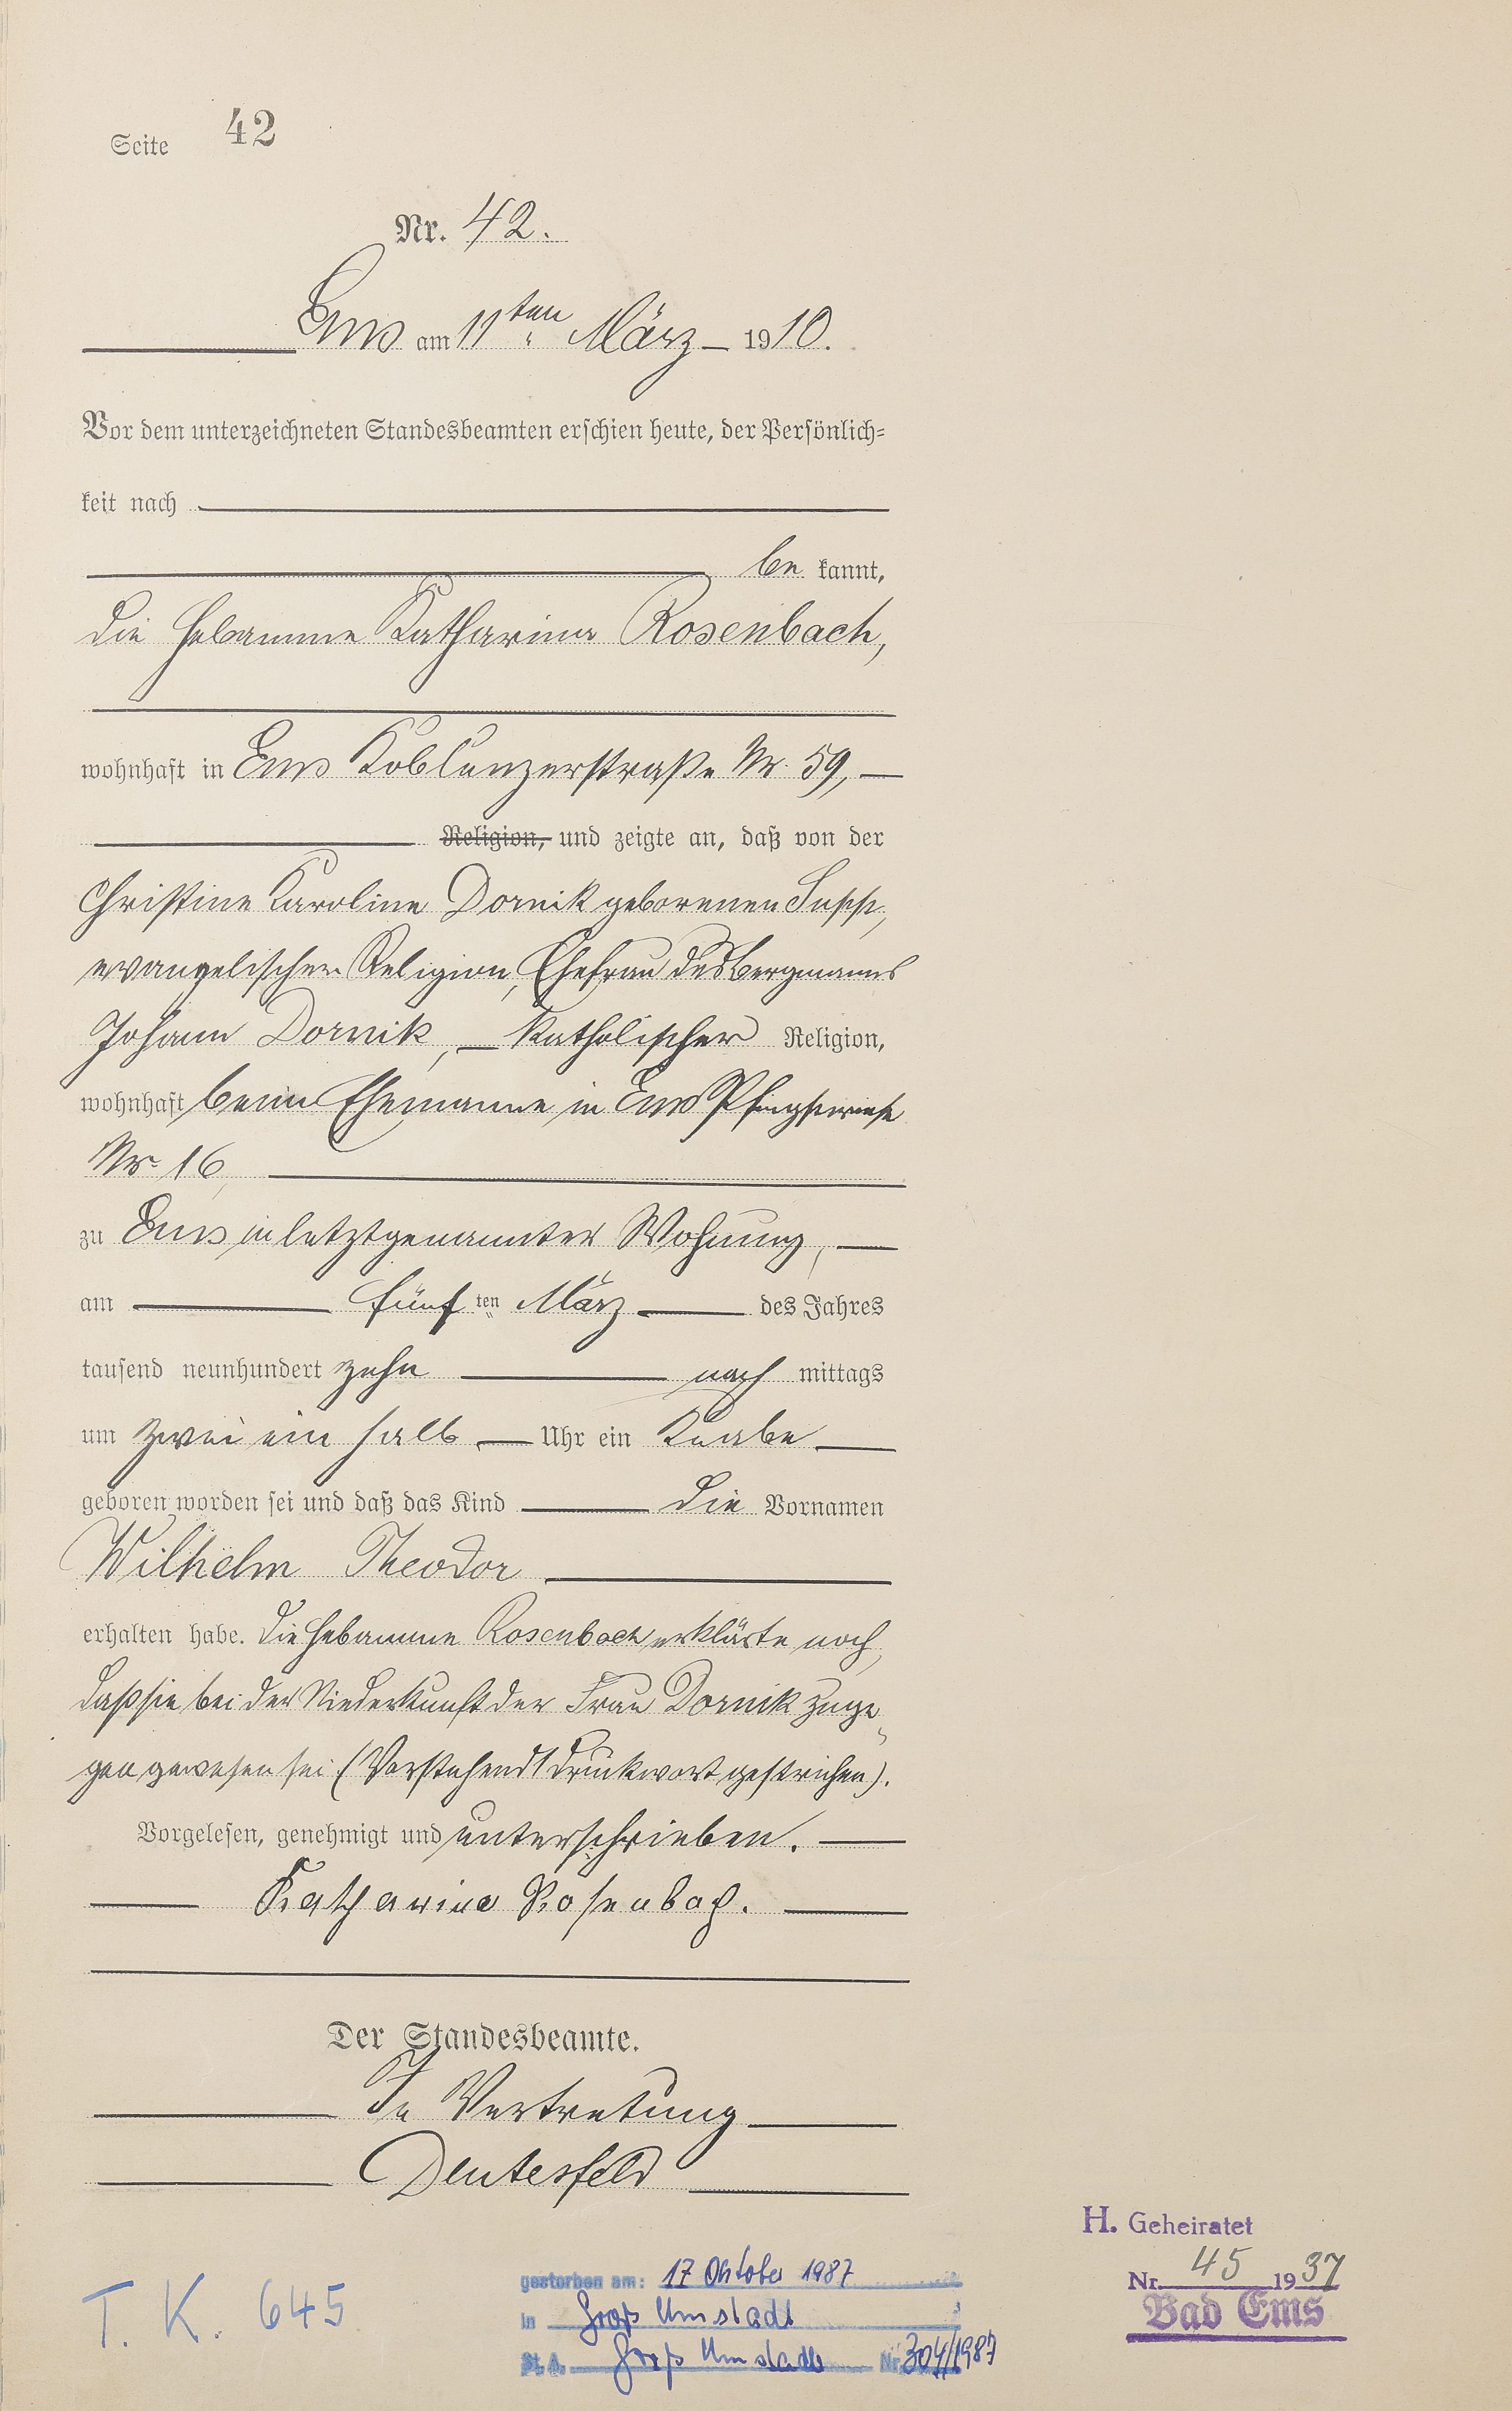 Seite 42
Nr. 42.
Ems am 11ten März 1910.
Vor dem unterzeichneten Standesbeamten erschien heute, der Persönlich-
keit nach
be kannt,
die Hebamme Katharina Rosenbach,
wohnhaft in Ems Koblenzerstraße Nr. 59,
Religion, und zeigte an, daß von der
Christine Karoline Dornik geborenen Supp,
evangelischer Religion, Ehefrau des Bergmanns
Johann Dornik, katholischer Religion,
wohnhaft beim Ehemanne in Ems Pfingstwiese
Nr. 16,
zu Ems in letztgenannter Wohnung,
am fünf ten März des Jahres
tausend neunhundert zehn nach mittags
um zwei ein halb Uhr ein Knabe
geboren worden sei und daß das Kind die Vornamen
Wilhelm Theodor
erhalten habe. Die Hebamme Rosenbach erklärte noch,
daß sie bei der Niederkunft der Frau Dornik zuge-
gen gewesen sei (Vorstehend 1 Druckwort gestrichen).
Vorgelesen, genehmigt und unterschrieben.
Katharina Rosenbach.
Der Standesbeamte.
In Vertretung
Deutesfeld
H. Geheiratet
Nr. 45 1937
Bad Ems
T. K. 645
gestorben am: 17 Oktober 1987
in Groß Umstadt
St. A. Groß Umstadt Nr. 304/1987